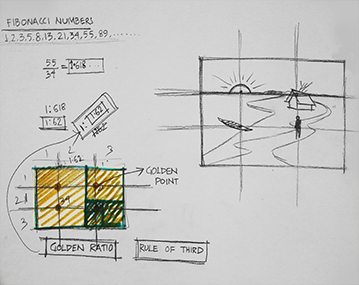 FIBONACCI NUMBERS
1,2,3,5,8,13,21,34,55,89,........
55
34
= 1.618...
1:618
1:62
1:1.62
1:62
1 2 3
1
2
3
GOLDEN
POINT
GOLDEN RATIO
RULE OF THIRD